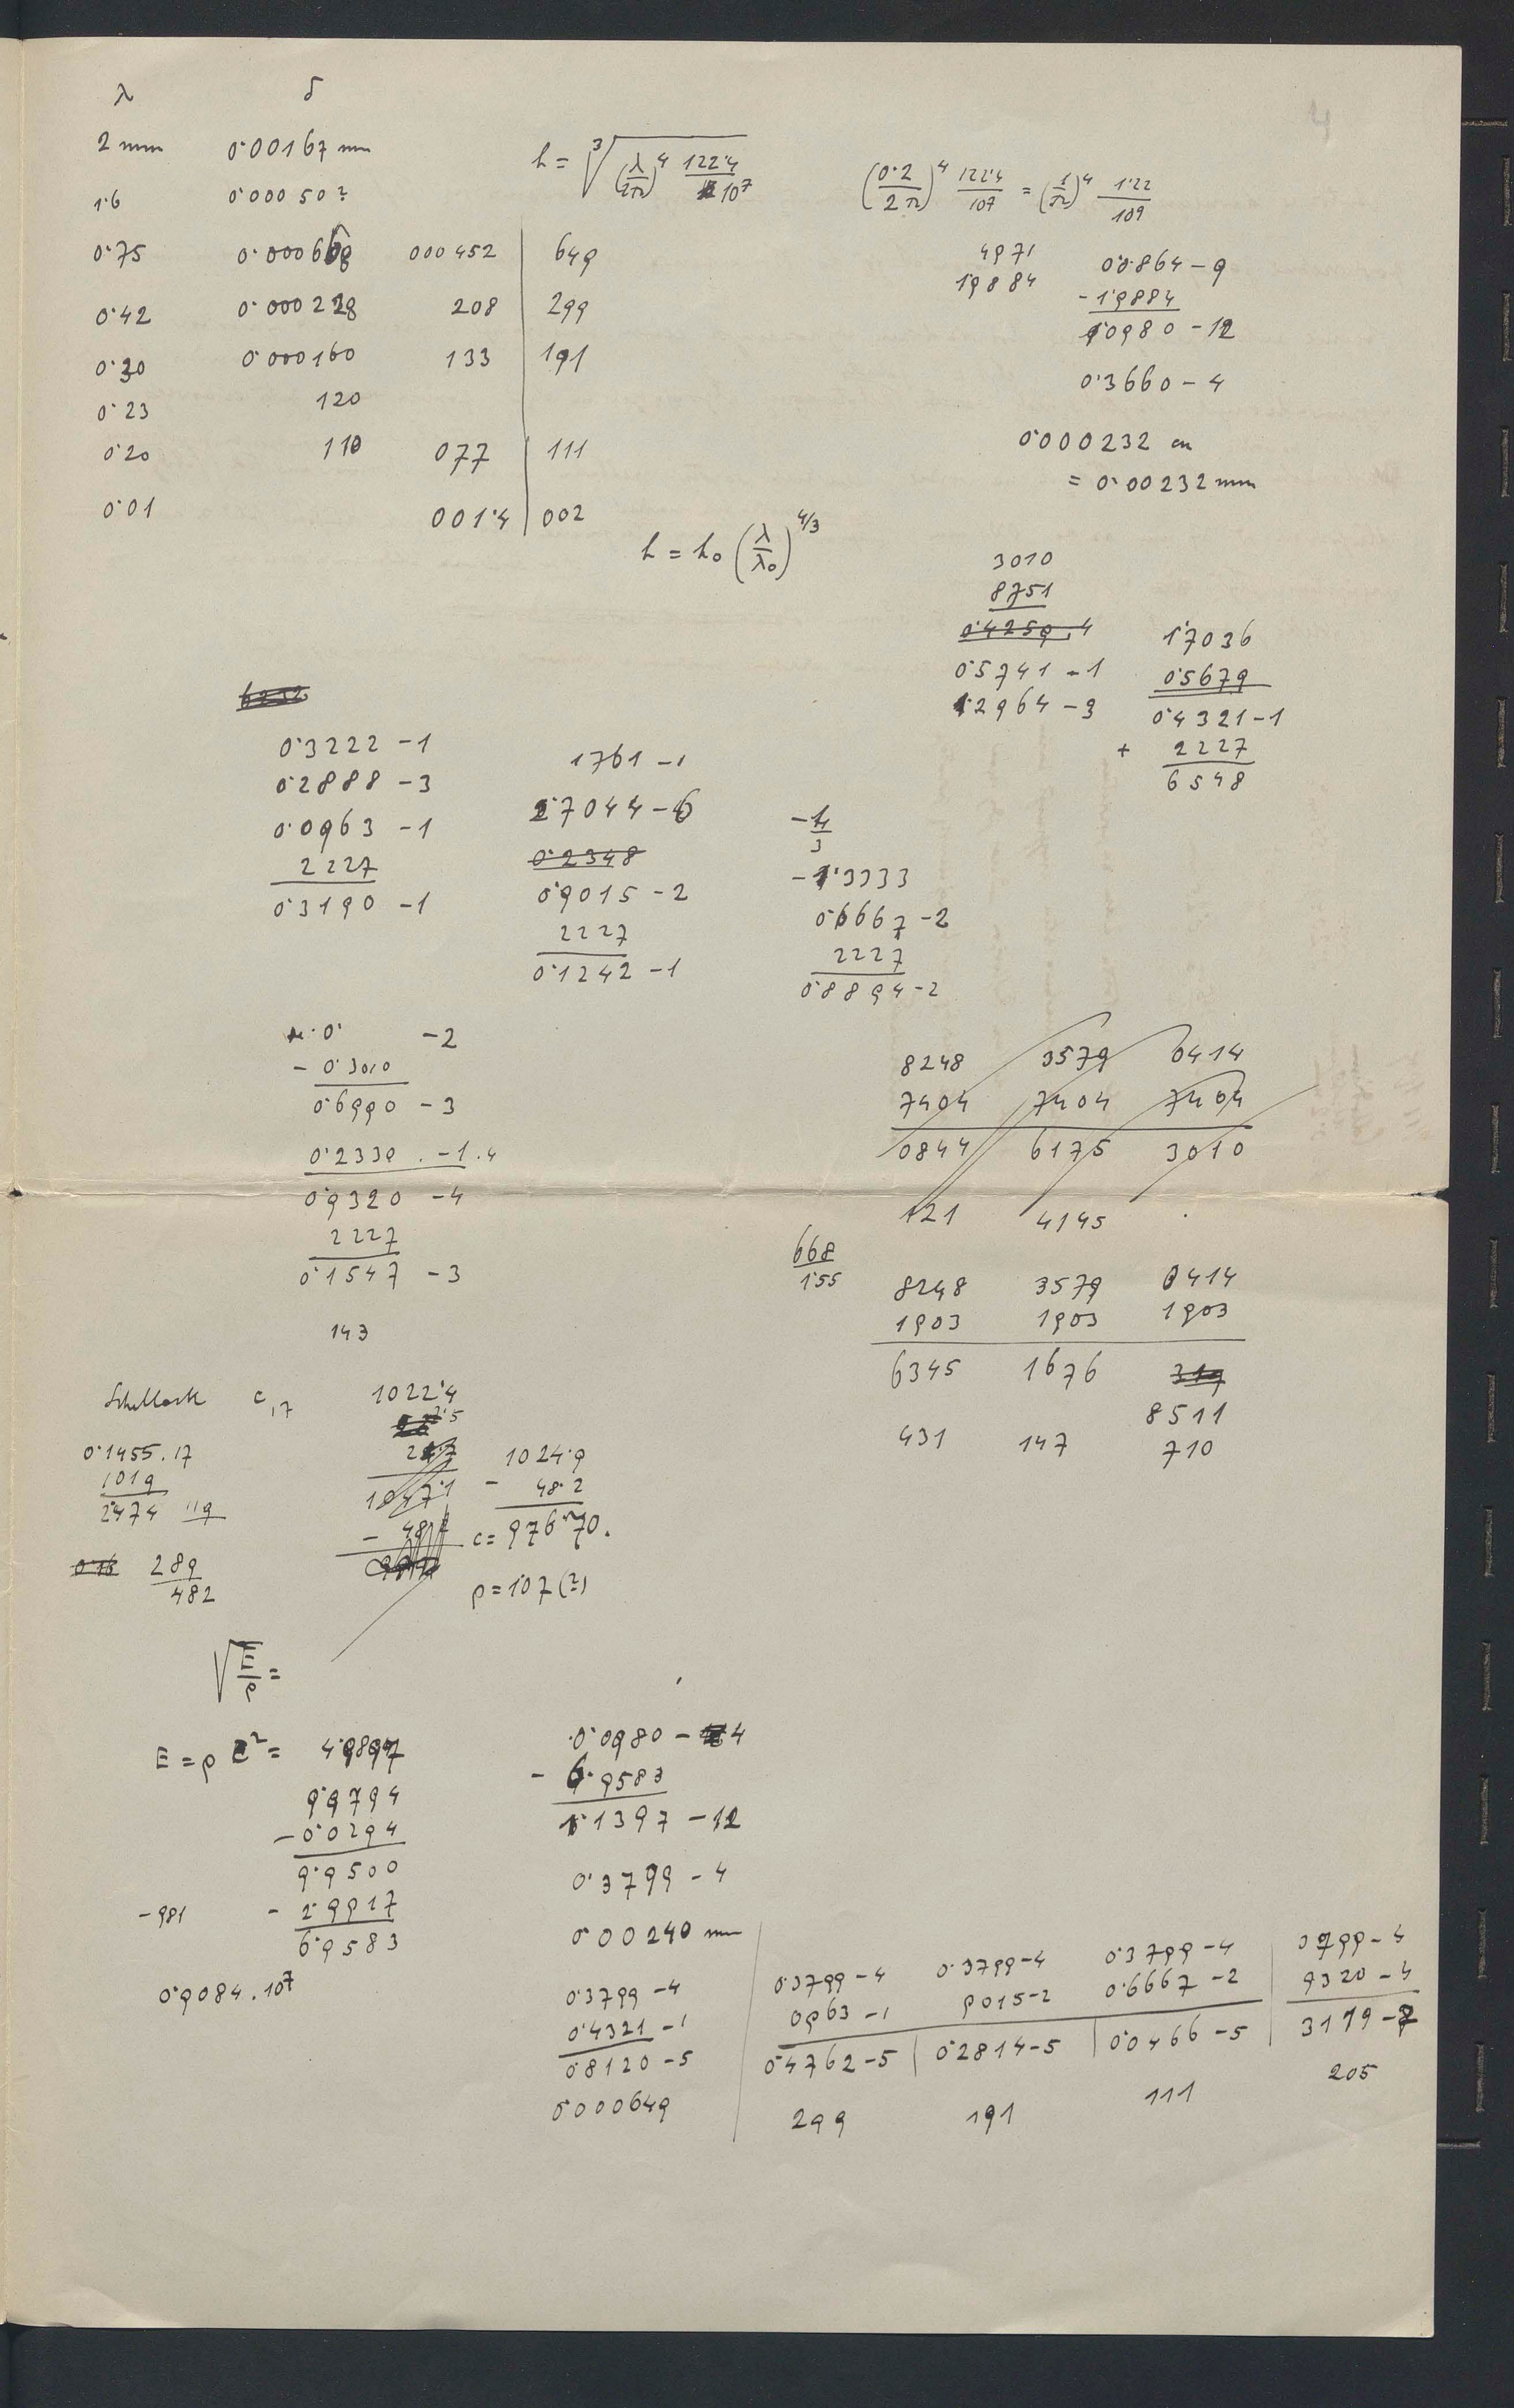 λ δ
2 mm 0·00167 mm
1·6 0·00050?
0·75 0·000668 000452 649
0·42 0·000228 208 299
0·30 0·000160 133 191
0·23 120
0·20 110 077 111
0·01 001·4 002
h = ∛((λ/2π)⁴ 122·4/10⁷)
(0·2/2π)⁴ 122·4/10⁷ = (1/π)⁴ 1·22/10⁹
4971
19884
0·0864 - 9
- 1·9884
1·0980 - 12
0·3660 - 4
0·000232 cm
= 0·00232 mm
h = h₀ (λ/λ₀)^4/3
3010
8751
0·4259.4
0·5741 - 1
1·2964 - 3
1·7036
0·5679
0·4321 - 1
+ 2227
6548
0·3222 - 1
0·2888 - 3
0·0963 - 1
2227
0·3190 - 1
1761 - 1
2·7044 - 6
0·2348
0·9015 - 2
2227
0·1242 - 1
- 4/3
- 1·3333
0·6667 - 2
2227
0·8894 - 2
0· - 2
- 0·3010
0·6990 - 3
0·2330 . - 1.4
0·9320 - 4
2227
0·1547 - 3
143
8248 3579 0414
7404 7404 7404
0844 6175 3010
121 4145
668/155
8248 3579 0414
1903 1903 1903
6345 1676 319
8511
431 147 710
Schellack c₁₇
0·1455.17
1019
2·474 119
0·16 289
482
1022·4
2·5
1047·1
1024·9
- 48·2
c = 976·70.
ρ = 1·07 (?)
√E/ρ =
E = ρ c² = 4·9897
9·9794
- 0·0294
9·9500
- 981 - 2·9917
6·9583
0·9084.10⁷
0·0980 - 4
- 6·9583
1·1397 - 12
0·3799 - 4
0·00240 mm
0·3799 - 4
0·4321 - 1
0·8120 - 5
0·000649
0·3799 - 4 0·3799 - 4 0·3799 - 4 3799 - 4
0963 - 1 9015 - 2 0·6667 - 2 9320 - 4
0·4762 - 5 0·2814 - 5 0·0466 - 5 3119 - 7
299 191 111 205